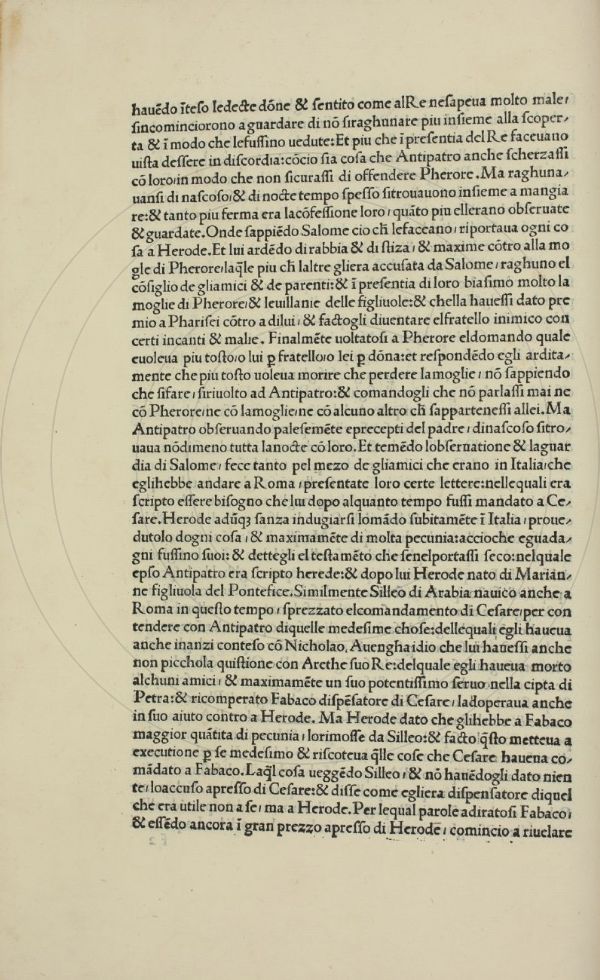 hauēdo īteso ledecte dōne & sentito come alRe nesapeua molto male,
sincominciorono aguardare di nō siraghunare piu insieme alla scoper,
ta & ī modo che lefussino uedute:Et piu che ī presentia delRe faceuano
uista dessere in discordia:cōcio sia cosa che Antipatro anche scherzassi
cō loro,in modo che non sicurassi di offendere Pherore.Ma raghuna,
uansi di nascoso,& di nocte tempo spesso sitrouauono insieme a mangia
re:& tanto piu ferma era lacōfessione loro,quāto piu ellerano obseruate
&guardate.Onde sappiēdo Salome cio ch̄ lefaceano,riportaua ogni co
sa a Herode.Et lui ardēdo di rabbia & di stiza,& maxime cōtro alla mo
gle di Pherore,laq̄le piu ch̄ laltre gliera accusata da Salome,raghuno el
cōsiglio de gliamici & de parenti:& ī presentia di loro biasimo molto la
moglie di Pherore,& leuillanie delle figliuole:& chella hauessi dato pre
mio a Pharisei cōtro a dilui,& factogli diuentare elfratello inimico con
certi incanti & malie. Finalmēte uoltatosi a Pherore eldomando quale
euoleua piu tosto,o lui ꝑ fratello,o lei ꝑ dōna:et respondēdo egli ardita,
mente che piu tosto uoleua morire che perdere lamoglie,nō sappiendo
che sifare,siriuolto ad Antipatro:& comandogli che nō parlassi mai ne
cō Pherore,ne cō lamoglie,ne cō alcuno altro ch̄ sappartenessi allei.Ma
Antipatro obseruando palesemēte eprecepti del padre,dinascoso sitro,
uaua nōdimeno tutta lanocte cō loro.Et temēdo lobseruatione &laguar
dia di Salome,fece tanto pel mezo de gliamici che erano in Italia,che
eglihebbe andare a Roma,presentate loro certe lettere:nellequali era
scripto essere bisogno che lui dopo alquanto tempo fussi mandato a Ce,
sare.Herode adūqꝫ sanza indugiarsi lomādo subitamēte ī Italia,proue,
dutolo dogni cosa,& maximamēte di molta pecunia:accioche eguada,
gni fussino suoi:& dettegli el testamēto che senelportassi seco:nelquale
epso Antipatro era scripto herede:& dopo lui Herode nato di Marian,
ne figliuola del Pontefice.Similmente Silleo di Arabia nauico anche a
Roma in questo tempo,sprezzato elcomandamento di Cesare,per con
tendere con Antipatro diquelle medesime chose:dellequali egli haueua
anche inanzi conteso cō Nicholao, Auenghaidio che lui hauessi anche
non picchola quistione con Arethe suo Re:delquale egli haueua morto
alchuni amici,& maximamēte un suo potentissimo seruo nella cipta di
Petra:& ricomperato Fabaco dispēsatore di Cesare,ladoperaua anche
in suo aiuto contro a Herode. Ma Herode dato che glihebbe a Fabaco
maggior quātita di pecunia,lorimosse da Silleo:& facto q̄sto metteua a
executione ꝑ se medesimo & riscoteua q̄lle cose che Cesare haueua co,
mādato a Fabaco.Laq̄l cosa ueggēdo Silleo,& nō hauēdogli dato nien
te,loaccuso apresso di Cesare:& disse come egliera dispensatore diquel
che era utile non a se,ma a Herode.Per lequal parole adiratosi Fabaco,
& essēdo ancora ī gran prezzo apresso di Herode,comincio a riuelare